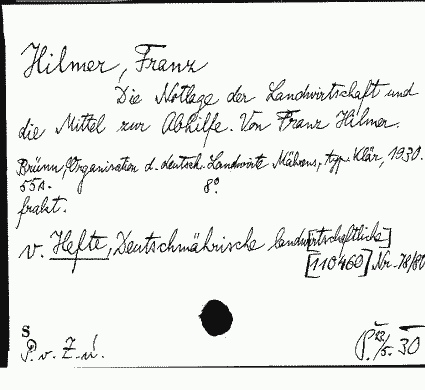 Hilmer, Franz
Die Notlage der Landwirtschaft und
die Mittel zur Abhilfe. Von Franz Hilmer.
Brünn, Organisation d. deutsch. Landwirte Mährens, typ. Klár, 1930.
55 s. 8°.
frakt.
v. Hefte, Deutschmährische landw[irtschaftliche]
[110460] Nr. 78/80
S
P. v. Z. ú. P. /5. 30